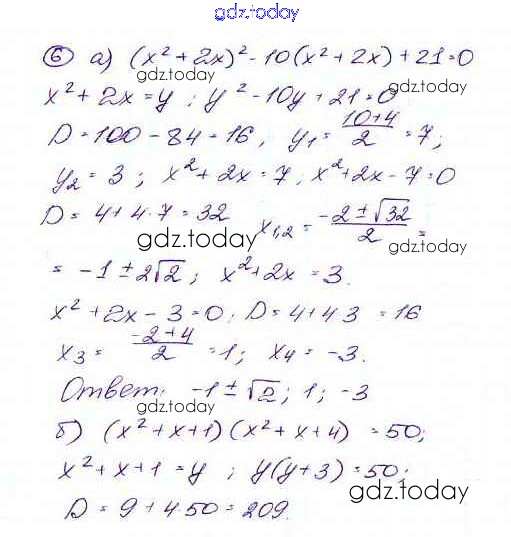 gdz.today
⑥ а) (x² + 2x)² - 10(x² + 2x) + 21 = 0
gdz.today
x² + 2x = y ; y² - 10y + 21 = 0
D = 100 - 84 = 16, y₁ = (10+4)/2 = 7;
y₂ = 3 ; x² + 2x = 7, x² + 2x - 7 = 0
gdz.today
D = 4 + 4·7 = 32 x₁,₂ = (-2 ± √32)/2 =
gdz.today
= -1 ± 2√2 ; x² + 2x = 3.
x² + 2x - 3 = 0; D = 4 + 4 3 = 16
gdz.today
x₃ = (-2+4)/2 = 1; x₄ = -3.
Ответ: -1 ± √2 ; 1 ; -3
gdz.today
б) (x² + x + 1)(x² + x + 4) = 50;
x² + x + 1 = y ; y(y + 3) = 50;
gdz.today
D = 9 + 4·50 = 209.